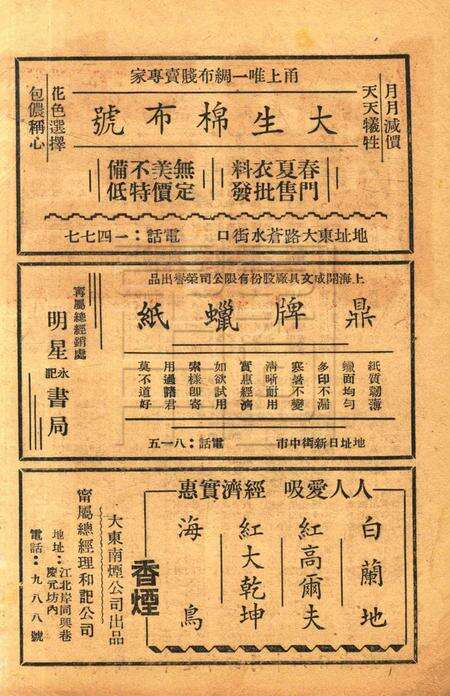 甬上唯一綢布賤賣專家
月月減價
天天犧牲
大生棉布號
花色選擇
包儂稱心
春夏衣料
門售批發
無美不備
定價特低
地址東大路蒼水街口
電話：一四七七
上海開成文具廠股份有限公司榮譽出品
鼎牌蠟紙
紙質韌薄
蠟面均勻
多印不漏
寒暑不變
清晰耐用
實惠經濟
如欲試用
索樣即寄
用過諸君
莫不道好
地址日新街中市
電話：八一五
甯屬總經銷處
明星永記書局
人人愛吸
經濟實惠
白蘭地
紅高爾夫
紅大乾坤
海鳥
香煙
大東南煙公司出品
甯屬總經理和記公司
地址：江北岸同興巷
慶元坊內
電話：九八八號